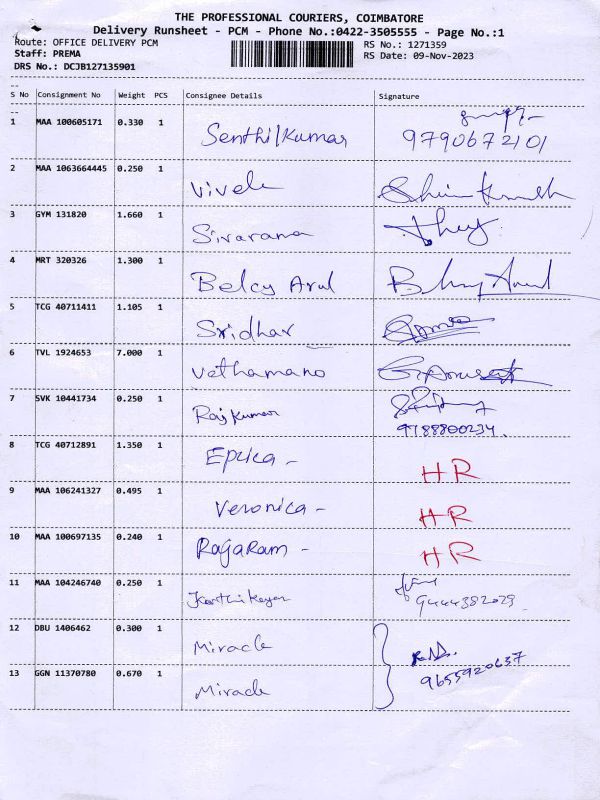 THE PROFESSIONAL COURIERS, COIMBATORE
Delivery Runsheet - PCM - Phone No.:0422-3505555 - Page No.:1
Route: OFFICE DELIVERY PCM
RS No.: 1271359
Staff: PREMA
RS Date: 09-Nov-2023
DRS No.: DCJB127135901
--
S No Consignment No Weight PCS Consignee Details Signature
--
1 MAA 100605171 0.330 1 Senthilkumar 9790672101
2 MAA 1063664445 0.250 1 Vivek
3 GYM 131820 1.660 1 Sivarama
4 MRT 320326 1.300 1 Belcy Arul
5 TCG 40711411 1.105 1 Sridhar
6 TVL 1924653 7.000 1 Vethamano
7 SVK 10441734 0.250 1 Rajkumar 9788800234.
8 TCG 40712891 1.350 1 Epica - HR
9 MAA 106241327 0.495 1 Veronica - HR
10 MAA 100697135 0.240 1 Rajaram - HR
11 MAA 104246740 0.250 1 Karthikeyan 9444382029.
12 DBU 1406462 0.300 1 Miracle
13 GGN 11370780 0.670 1 Miracle 9655920637